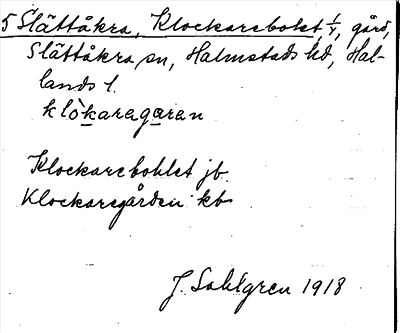 5 Slättåkra, Klockarebolet 1/4, gård,
Slättåkra sn, Halmstads hd, Hal-
lands l.
klò̱karagaran
Klockarebohlet jb
Klockaregården kb
J. Sahlgren 1918